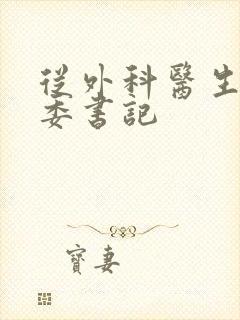 從外科醫生
委書記
寶妻